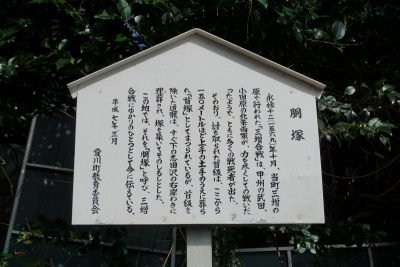 胴塚
永禄十二(一五六九)年十月、当町三増の
原で行われた「三増合戦」は、甲州の武田
小田原の北条両軍が、力を尽くしての戦いだ
ったようで、ともに多くの戦死者が出た。
そのおり、討ち取られた首級は、ここから
一五〇メートルほど上手の土手のうえに葬ら
れ、「首塚」としてまつられているが、首級を
除いた遺骸は、すぐ下の志田沢の右岸わきに
埋葬され、塚を築いてそのしるしとした。
この地では、それを「胴塚」と呼び、三増
合戦にゆかりのひとつとして今に伝えている。
平成七年三月
愛川町教育委員会